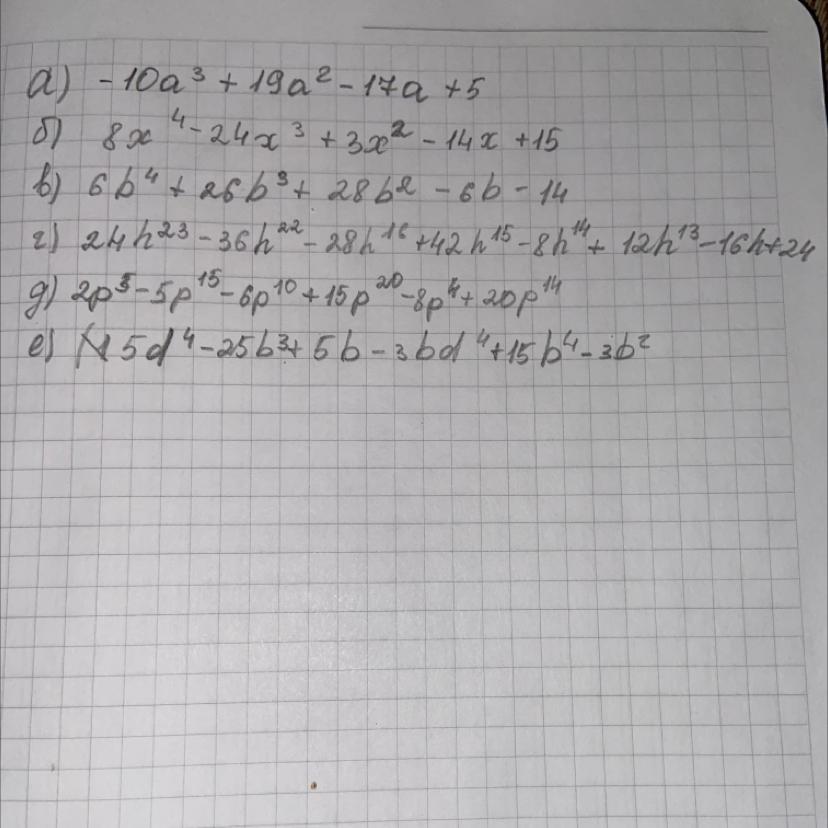 а) -10a³ + 19a² - 17a + 5
б) 8x⁴ - 24x³ + 3x² - 14x + 15
в) 6b⁴ + 26b³ + 28b² - 6b - 14
г) 24h²³ - 36h²² - 28h¹⁶ + 42h¹⁵ - 8h¹⁴ + 12h¹³ - 16h + 24
д) 2p⁵ - 5p¹⁵ - 6p¹⁰ + 15p²⁰ - 8p⁴ + 20p¹⁴
е) 5d⁴ - 25b³ + 5b - 3bd⁴ + 15b⁴ - 3b²